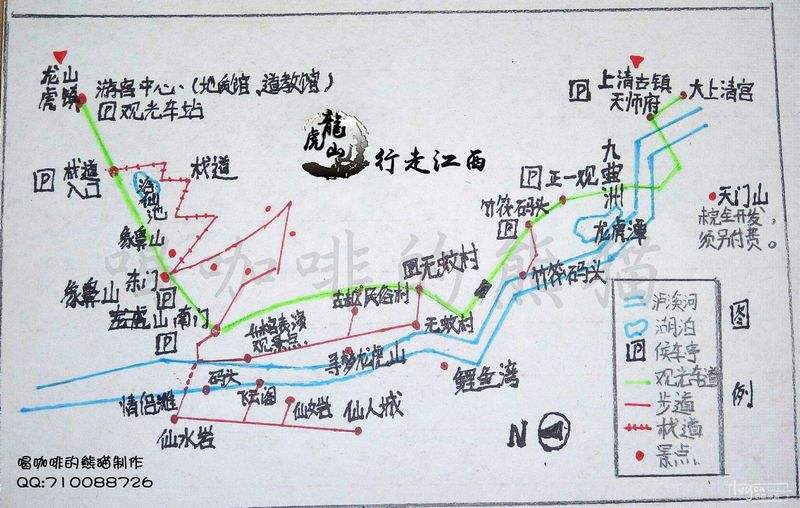 龙山
虎镇
游客中心(地质馆、道教馆)
P 观光车站
龍
虎
山
行走江西
P
上清古镇
天师府
大上清宫
P
栈道
入口
栈道
浴仙池
P
正一观
九曲洲
天门山
未完全开发,
须另付费。
竹筏码头
P
龙虎潭
象鼻山
喝咖啡的熊猫
无蚊村
竹筏码头
象鼻山
东门
P
古越民俗村
南门
P
观景点
无蚊村
寻梦龙虎山
码头
飞云阁
鲤鱼湾
情侣滩
仙女岩
仙人城
仙水岩
N
图例
泸溪河
湖泊
P 候车亭
观光车道
步道
栈道
景点
喝咖啡的熊猫制作
QQ:710088726